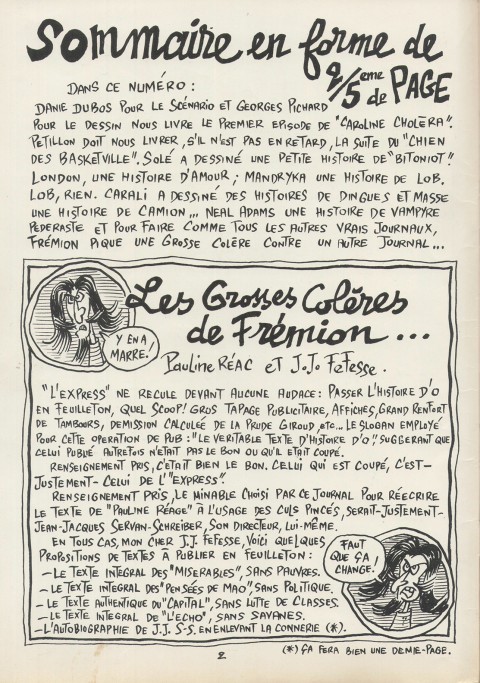 Sommaire en forme de
2/5eme de PAGE
DANS CE NUMÉRO :
DANIE DUBOS POUR LE SCÉNARIO ET GEORGES PICHARD
POUR LE DESSIN NOUS LIVRE LE PREMIER EPISODE DE "CAROLINE CHOLÈRA".
PETILLON DOIT NOUS LIVRER, S'IL N'EST PAS EN RETARD, LA SUITE DU "CHIEN
DES BASKETVILLE". SOLÉ A DESSINÉ UNE PETITE HISTOIRE DE "BITONIOT"!
LONDON, UNE HISTOIRE D'AMOUR ; MANDRYKA UNE HISTOIRE DE LOB.
LOB, RIEN. CARALI A DESSINÉ DES HISTOIRES DE DINGUES ET MASSE
UNE HISTOIRE DE CAMION... NEAL ADAMS UNE HISTOIRE DE VAMPYRE
PEDERASTE ET POUR FAIRE COMME TOUS LES AUTRES VRAIS JOURNAUX,
FRÉMION PIQUE UNE GROSSE COLÈRE CONTRE UN AUTRE JOURNAL...
Les Grosses Colères
de Frémion ...
Y EN A
MARRE!
Pauline RÉAC ET J.J. FEFESSE.
"L'EXPRESS" NE RECULE DEVANT AUCUNE AUDACE : PASSER L'HISTOIRE D'O
EN FEUILLETON, QUEL SCOOP! GROS TAPAGE PUBLICITAIRE, AFFICHES, GRAND RENFORT
DE TAMBOURS, DEMISSION CALCULÉE DE LA PRUDE GIROUD, etc... LE SLOGAN EMPLOYÉ
POUR CETTE OPERATION DE PUB : "LE VERITABLE TEXTE D'HISTOIRE D'O", SUGGERANT QUE
CELUI PUBLIÉ AUTREFOIS N'ETAIT PAS LE BON OU QU'IL ETAIT COUPÉ.
RENSEIGNEMENT PRIS, C'ETAIT BIEN LE BON. CELUI QUI EST COUPÉ, C'EST-
JUSTEMENT- CELUI DE L'"EXPRESS".
RENSEIGNEMENT PRIS, LE MINABLE CHOISI PAR CE JOURNAL POUR RÉÉCRIRE
LE TEXTE DE "PAULINE RÉAGE" À L'USAGE DES CULS PINCÉS, SERAIT-JUSTEMENT-
JEAN-JACQUES SERVAN-SCHREIBER, SON DIRECTEUR, LUI-MÊME.
EN TOUS CAS, MON CHER J.J. FEFESSE, VOICI QUELQUES
PROPOSITIONS DE TEXTES À PUBLIER EN FEUILLETON :
- LE TEXTE INTEGRAL DES "MISERABLES", SANS PAUVRES.
- LE TEXTE INTEGRAL DES "PENSÉES DE MAO", SANS POLITIQUE.
- LE TEXTE AUTHENTIQUE DU "CAPITAL", SANS LUTTE DE CLASSES.
- LE TEXTE INTEGRAL DE "L'ECHO", SANS SAVANES.
- L'AUTOBIOGRAPHIE DE J.J. S-S. EN ENLEVANT LA CONNERIE (*).
FAUT
QUE ÇA
CHANGE!
2
(*) ÇA FERA BIEN UNE DEMIE-PAGE.